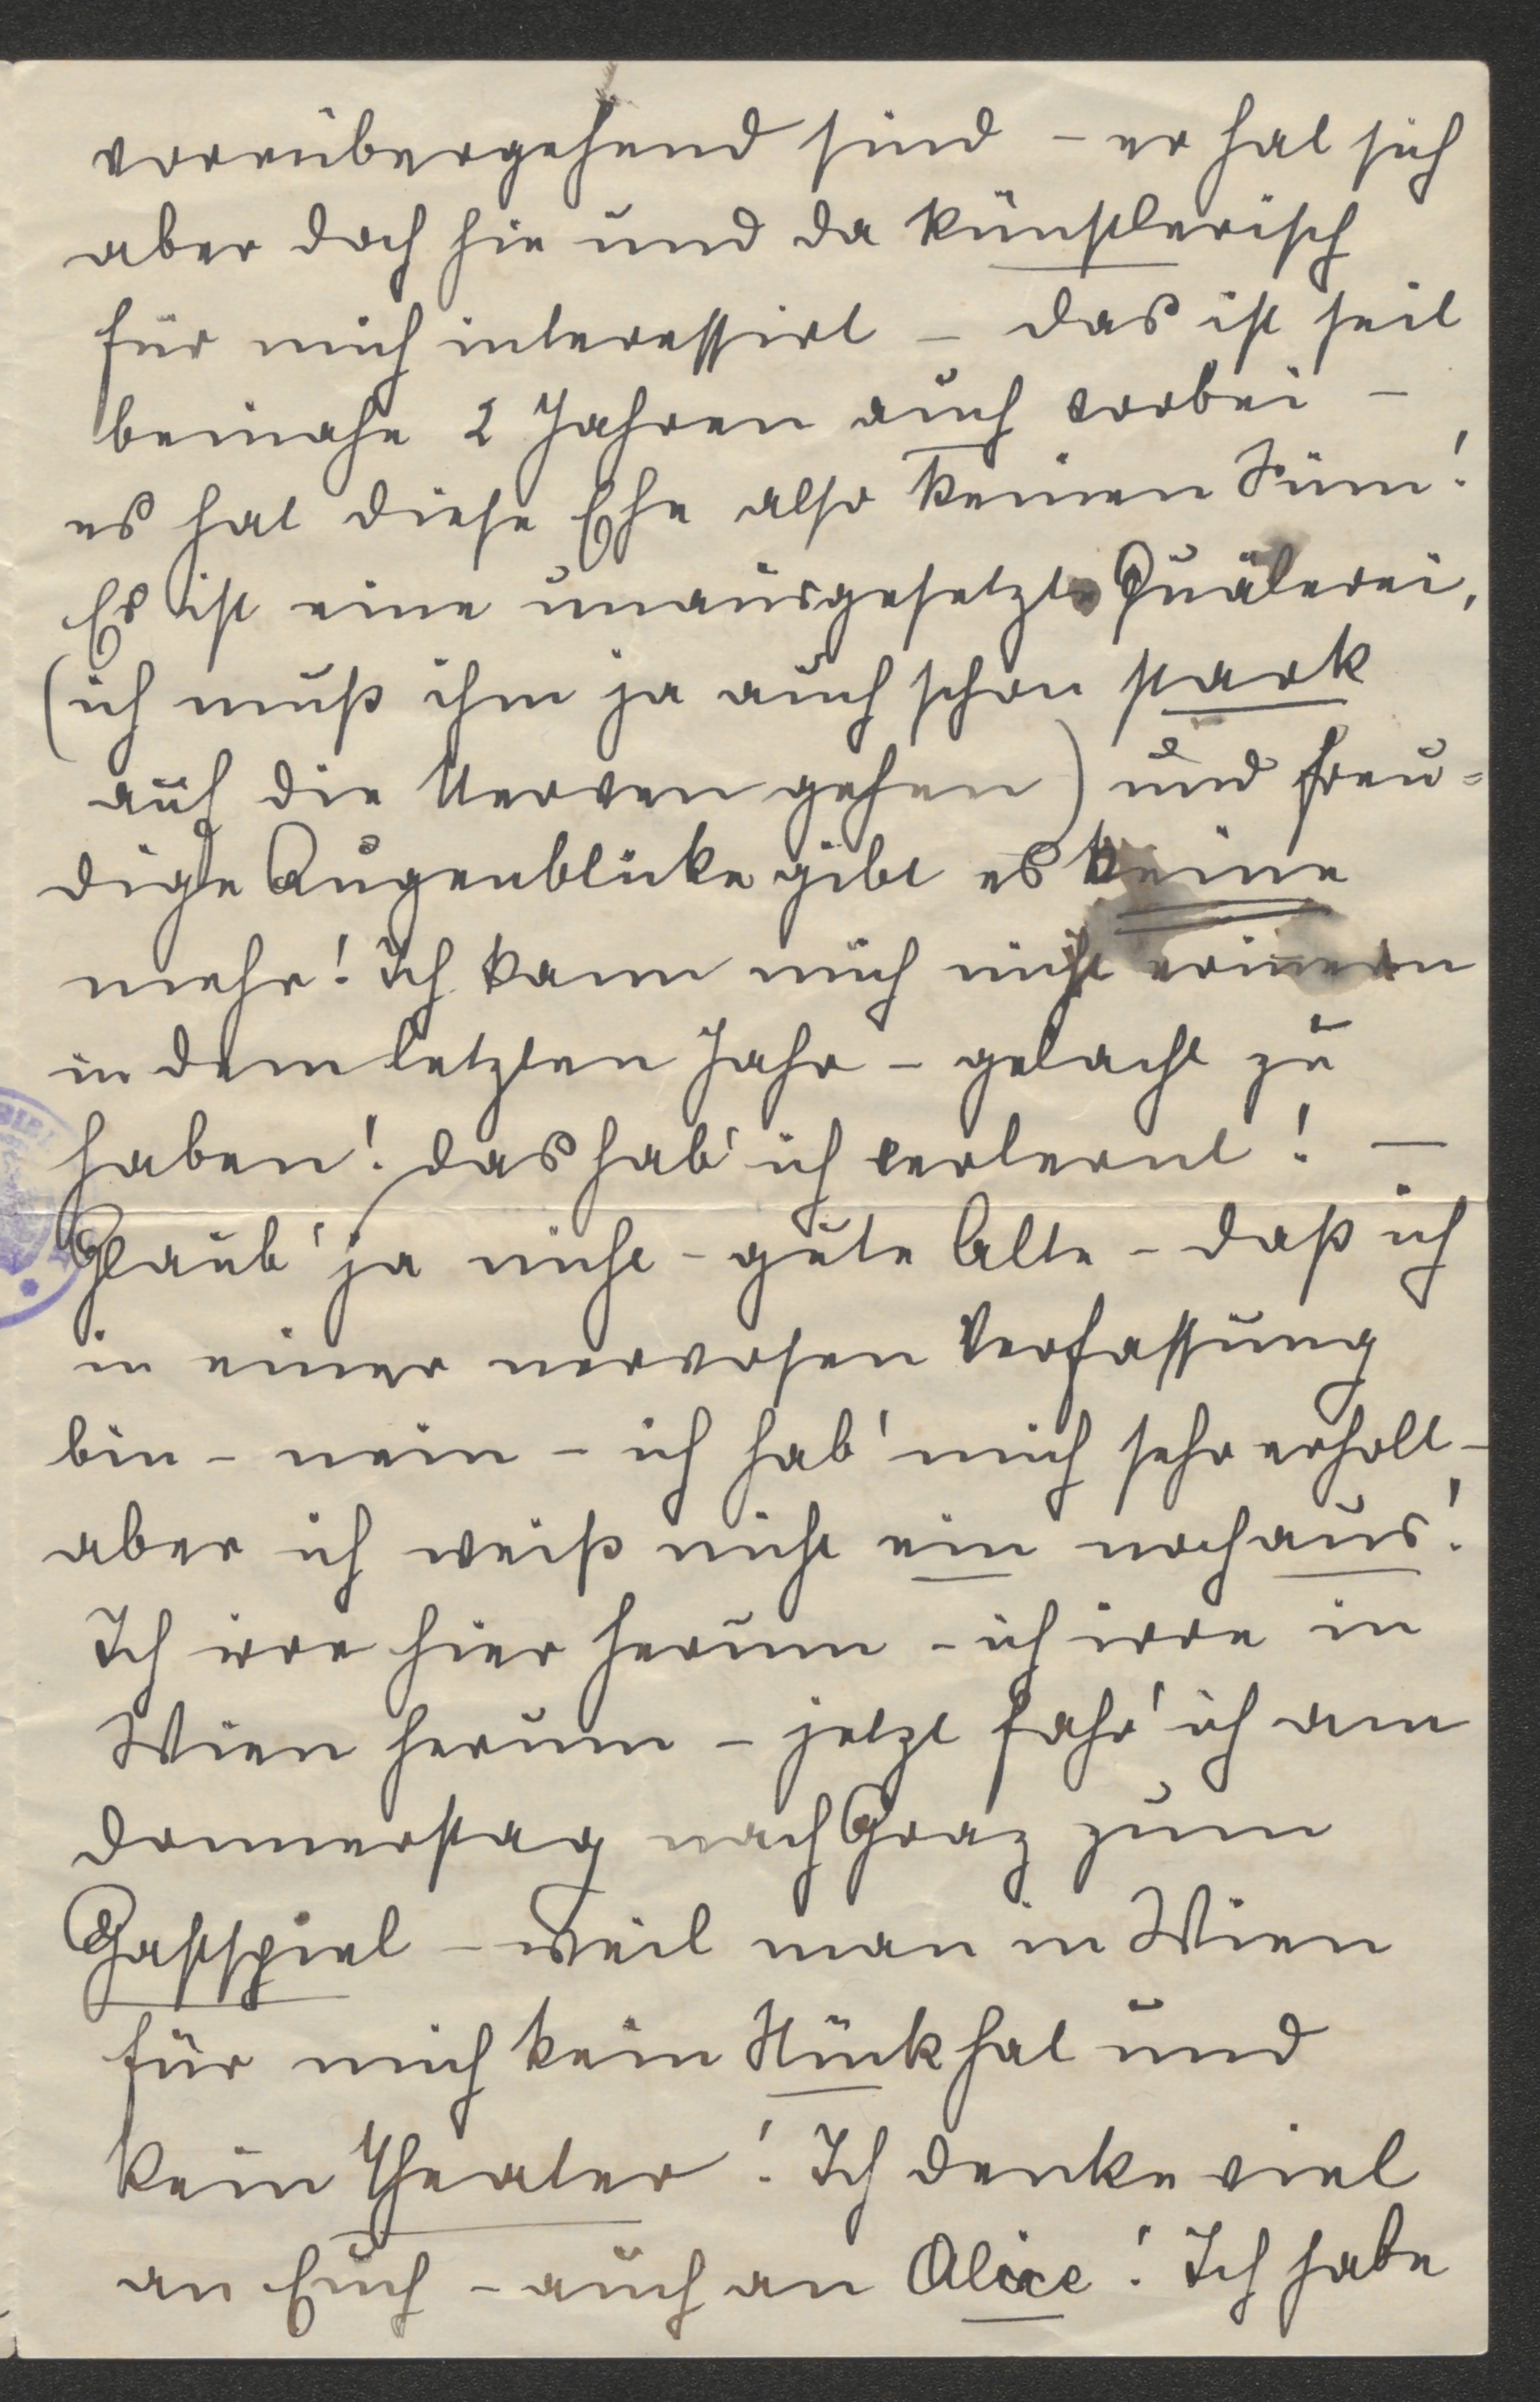 vorrübergehend sind – er hat sich
aber doch hie und da künstlerisch
für mich interessirt – das ist seit
beinahe 2 Jahren auch vorbei –
es hat diese Ehe also keinen Sinn!
Es ist eine unausgesetzte Quälerei,
(ich muß ihm ja auch schon stark
auf die Nerven gehen) und freu=
dige Augenblicke gibt es keine
mehr! Ich kann mich nicht erinnern
in dem letzten Jahr – gelacht zu
haben! das hab' ich verlernt! –
Glaub' ja nicht – gute Alte – daß ich
in einer nervosen Verfassung
bin – nein – ich hab' mich sehr erholt –
aber ich weiß nicht ein noch aus!
Ich irre hier herum – ich irre in
Wien herum – jetzt fahr' ich am
Donnerstag nach Graz zum
Gastspiel – weil man in Wien
für mich kein Stück hat und
kein Theater! Ich denke viel
an Euch – auch an Alice! Ich habe